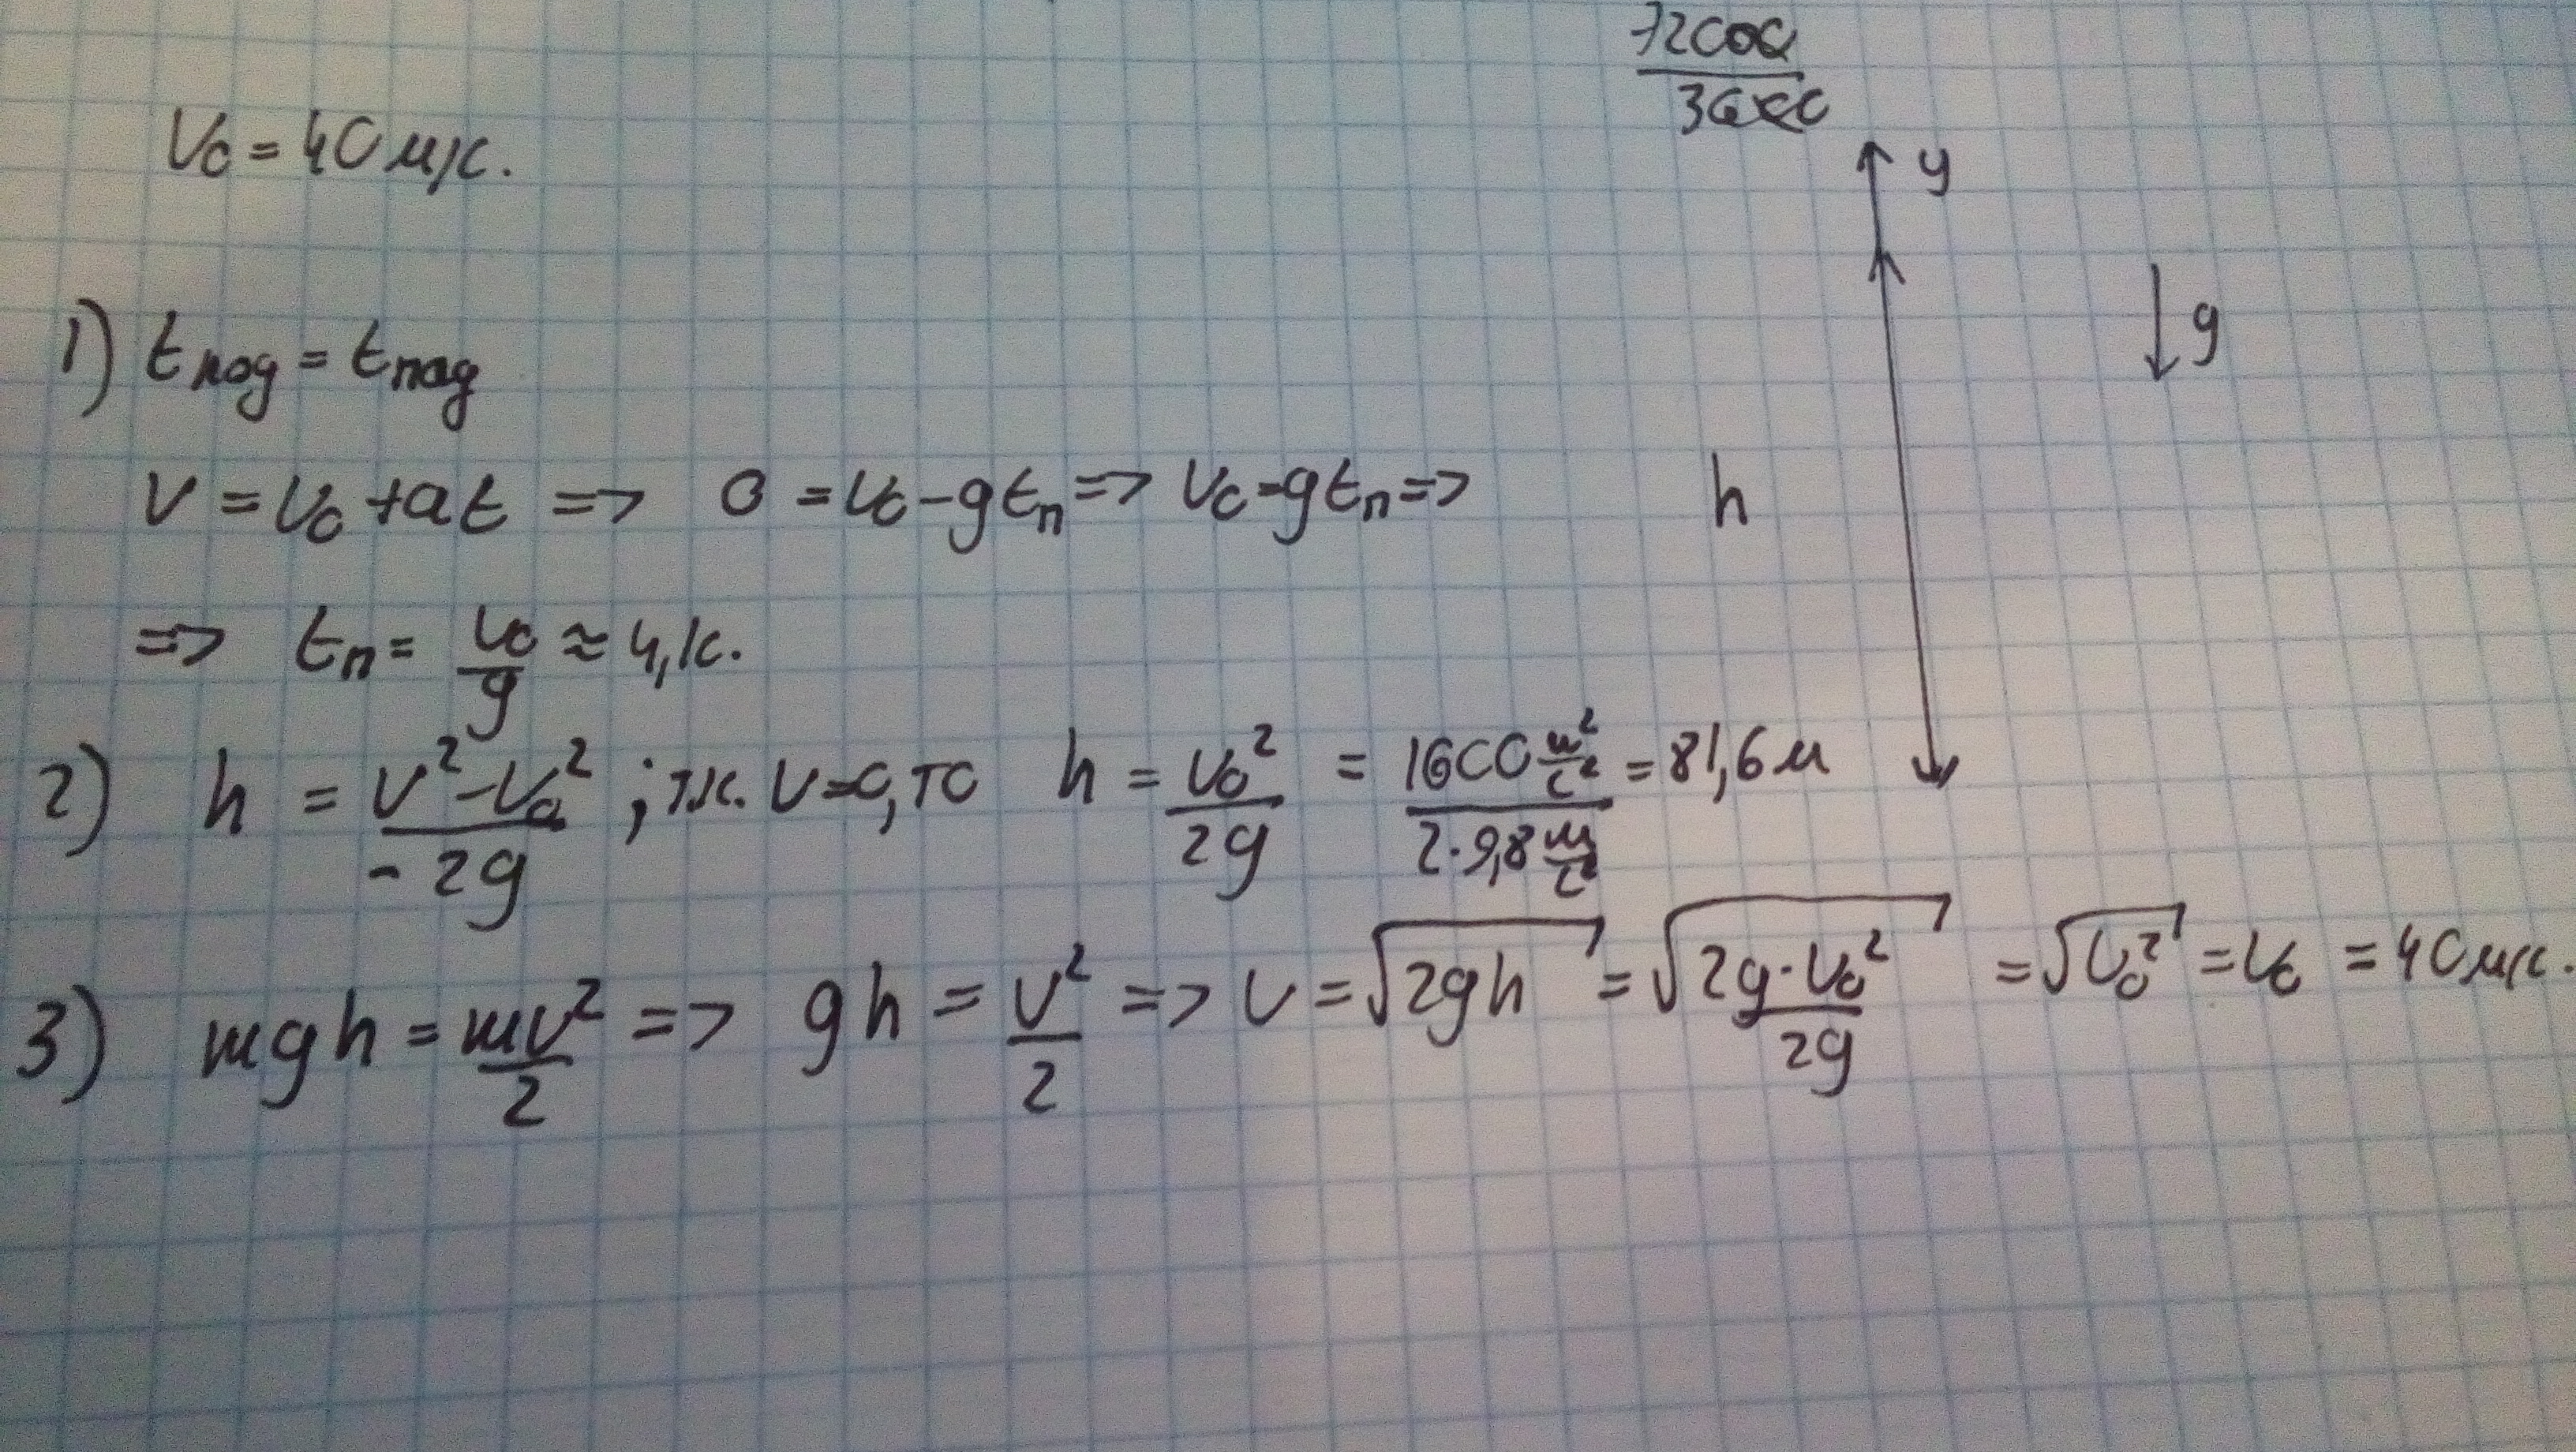 72000/3600
V₀ = 40 м/с.
y
g
1) tпод = tпад
V = V₀ + at => 0 = V₀ - gtп => V₀ = gtп =>
h
=> tп = V₀/g ≈ 4,1с.
2) h = (V² - V₀²)/(-2g) ; т.к. V=0, то h = V₀²/2g = 1600 м²/с² / 2·9,8 м/с² = 81,6 м
3) mgh = mv²/2 => gh = V²/2 => V = √2gh = √(2g·V₀²/2g) = √V₀² = V₀ = 40 м/с.